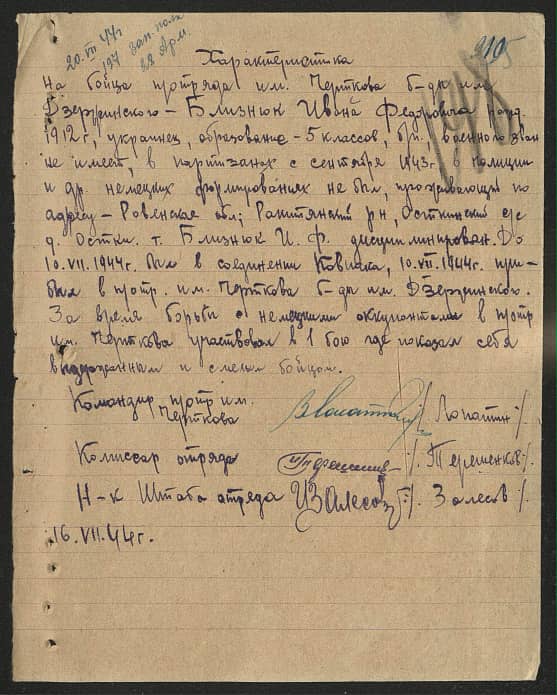 20.VII 44г
197 зап. полк
28 Арм.
205
148
Характеристика
На бойца п/отряда им. Черткова б-ды им.
Дзержинского – Близнюк Ивана Федоровича рожд.
1912г, украинец, образование – 5 классов, б/п, военного зван
не имеет, в партизанах с сентября 1943г. в полиции
и др. немецких формированиях не был, проживающий по
адресу – Ровенская обл; Ракитянский рн, Осткинский с/с
д. Остки. т. Близнюк И. Ф. дисциплинирован. До
10.VII.1944г. был в соединении Ковпака, 10.VII.1944г. при-
был в п/отр. им. Черткова б-ды им. Дзержинского.
За время борьбы с немецкими оккупантами в п/отр
им. Черткова участвовал в 1 бою где показал себя
выдержанным и смелым бойцом.
Командир п/отр им.
Черткова /Лопатин/.
Комиссар отряда /.Терешенков/.
Н-к Штаба отряда /. Залесов/.
16.VII.44г.